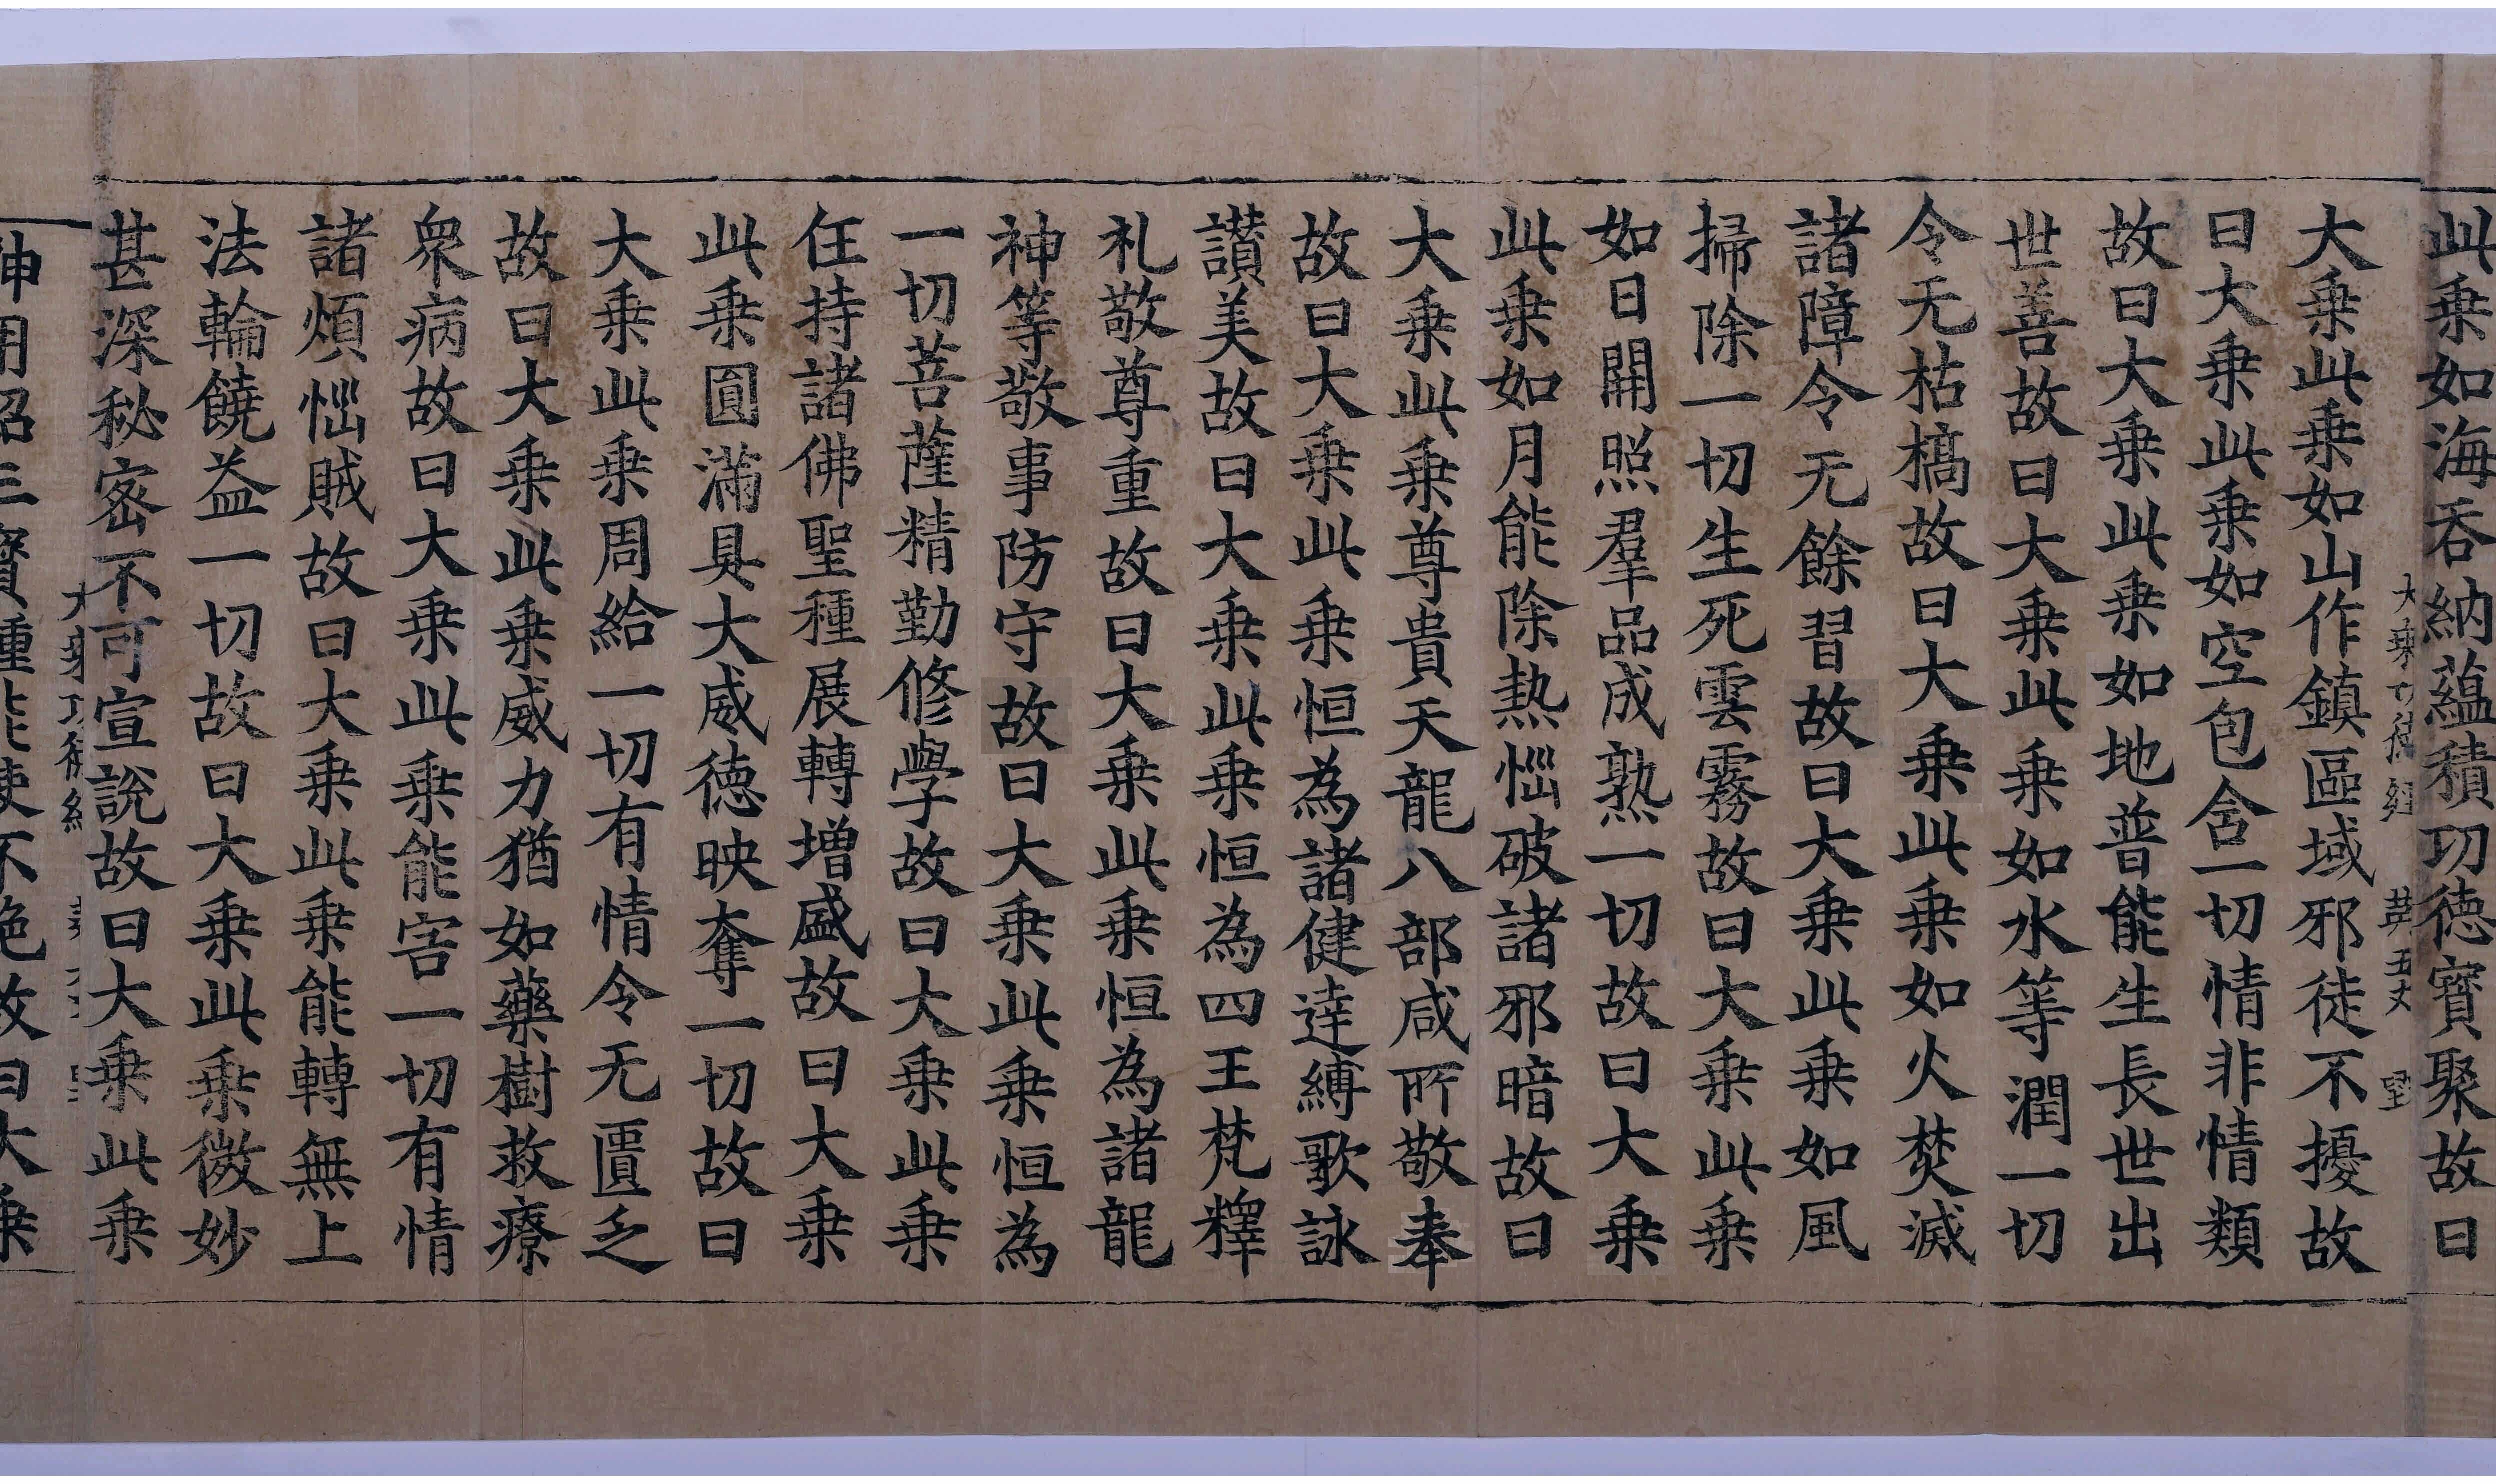 此乗如海吞納蘊積功徳寳聚故曰
大乗功徳經 五丈 
大乗此乗如山作鎮區域邪徒不擾故
曰大乗此乗如空包含一切情非情類
故曰大乗此乗如地普能生長世出
世善故曰大乗此乗如水等潤一切
令无枯槁故曰大乗此乗如火焚滅
諸障令无餘習故曰大乗此乗如風
掃除一切生死雲霧故曰大乗此乗
如日開照羣品成熟一切故曰大乗
此乗如月能除熱惱破諸邪暗故曰
大乗此乗尊貴天龍八部咸所敬奉
故曰大乗此乗恒為諸健達縛歌詠
讃美故曰大乗此乗恒為四王梵釋
礼敬尊重故曰大乗此乗恒為諸龍
神等敬事防守故曰大乗此乗恒為
一切菩薩精勤修學故曰大乗此乗
任持諸佛聖種展轉增盛故曰大乗
此乗圓滿具大威徳映奪一切故曰
大乗此乗周給一切有情令无匱乏
故曰大乗此乗威力猶如藥樹救療
衆病故曰大乗此乗能害一切有情
諸煩惱賊故曰大乗此乗能轉無上
法輪饒益一切故曰大乗此乗微妙
甚深秘密不可宣說故曰大乗此乗
神用紹三寳種能使不絶故曰大乗